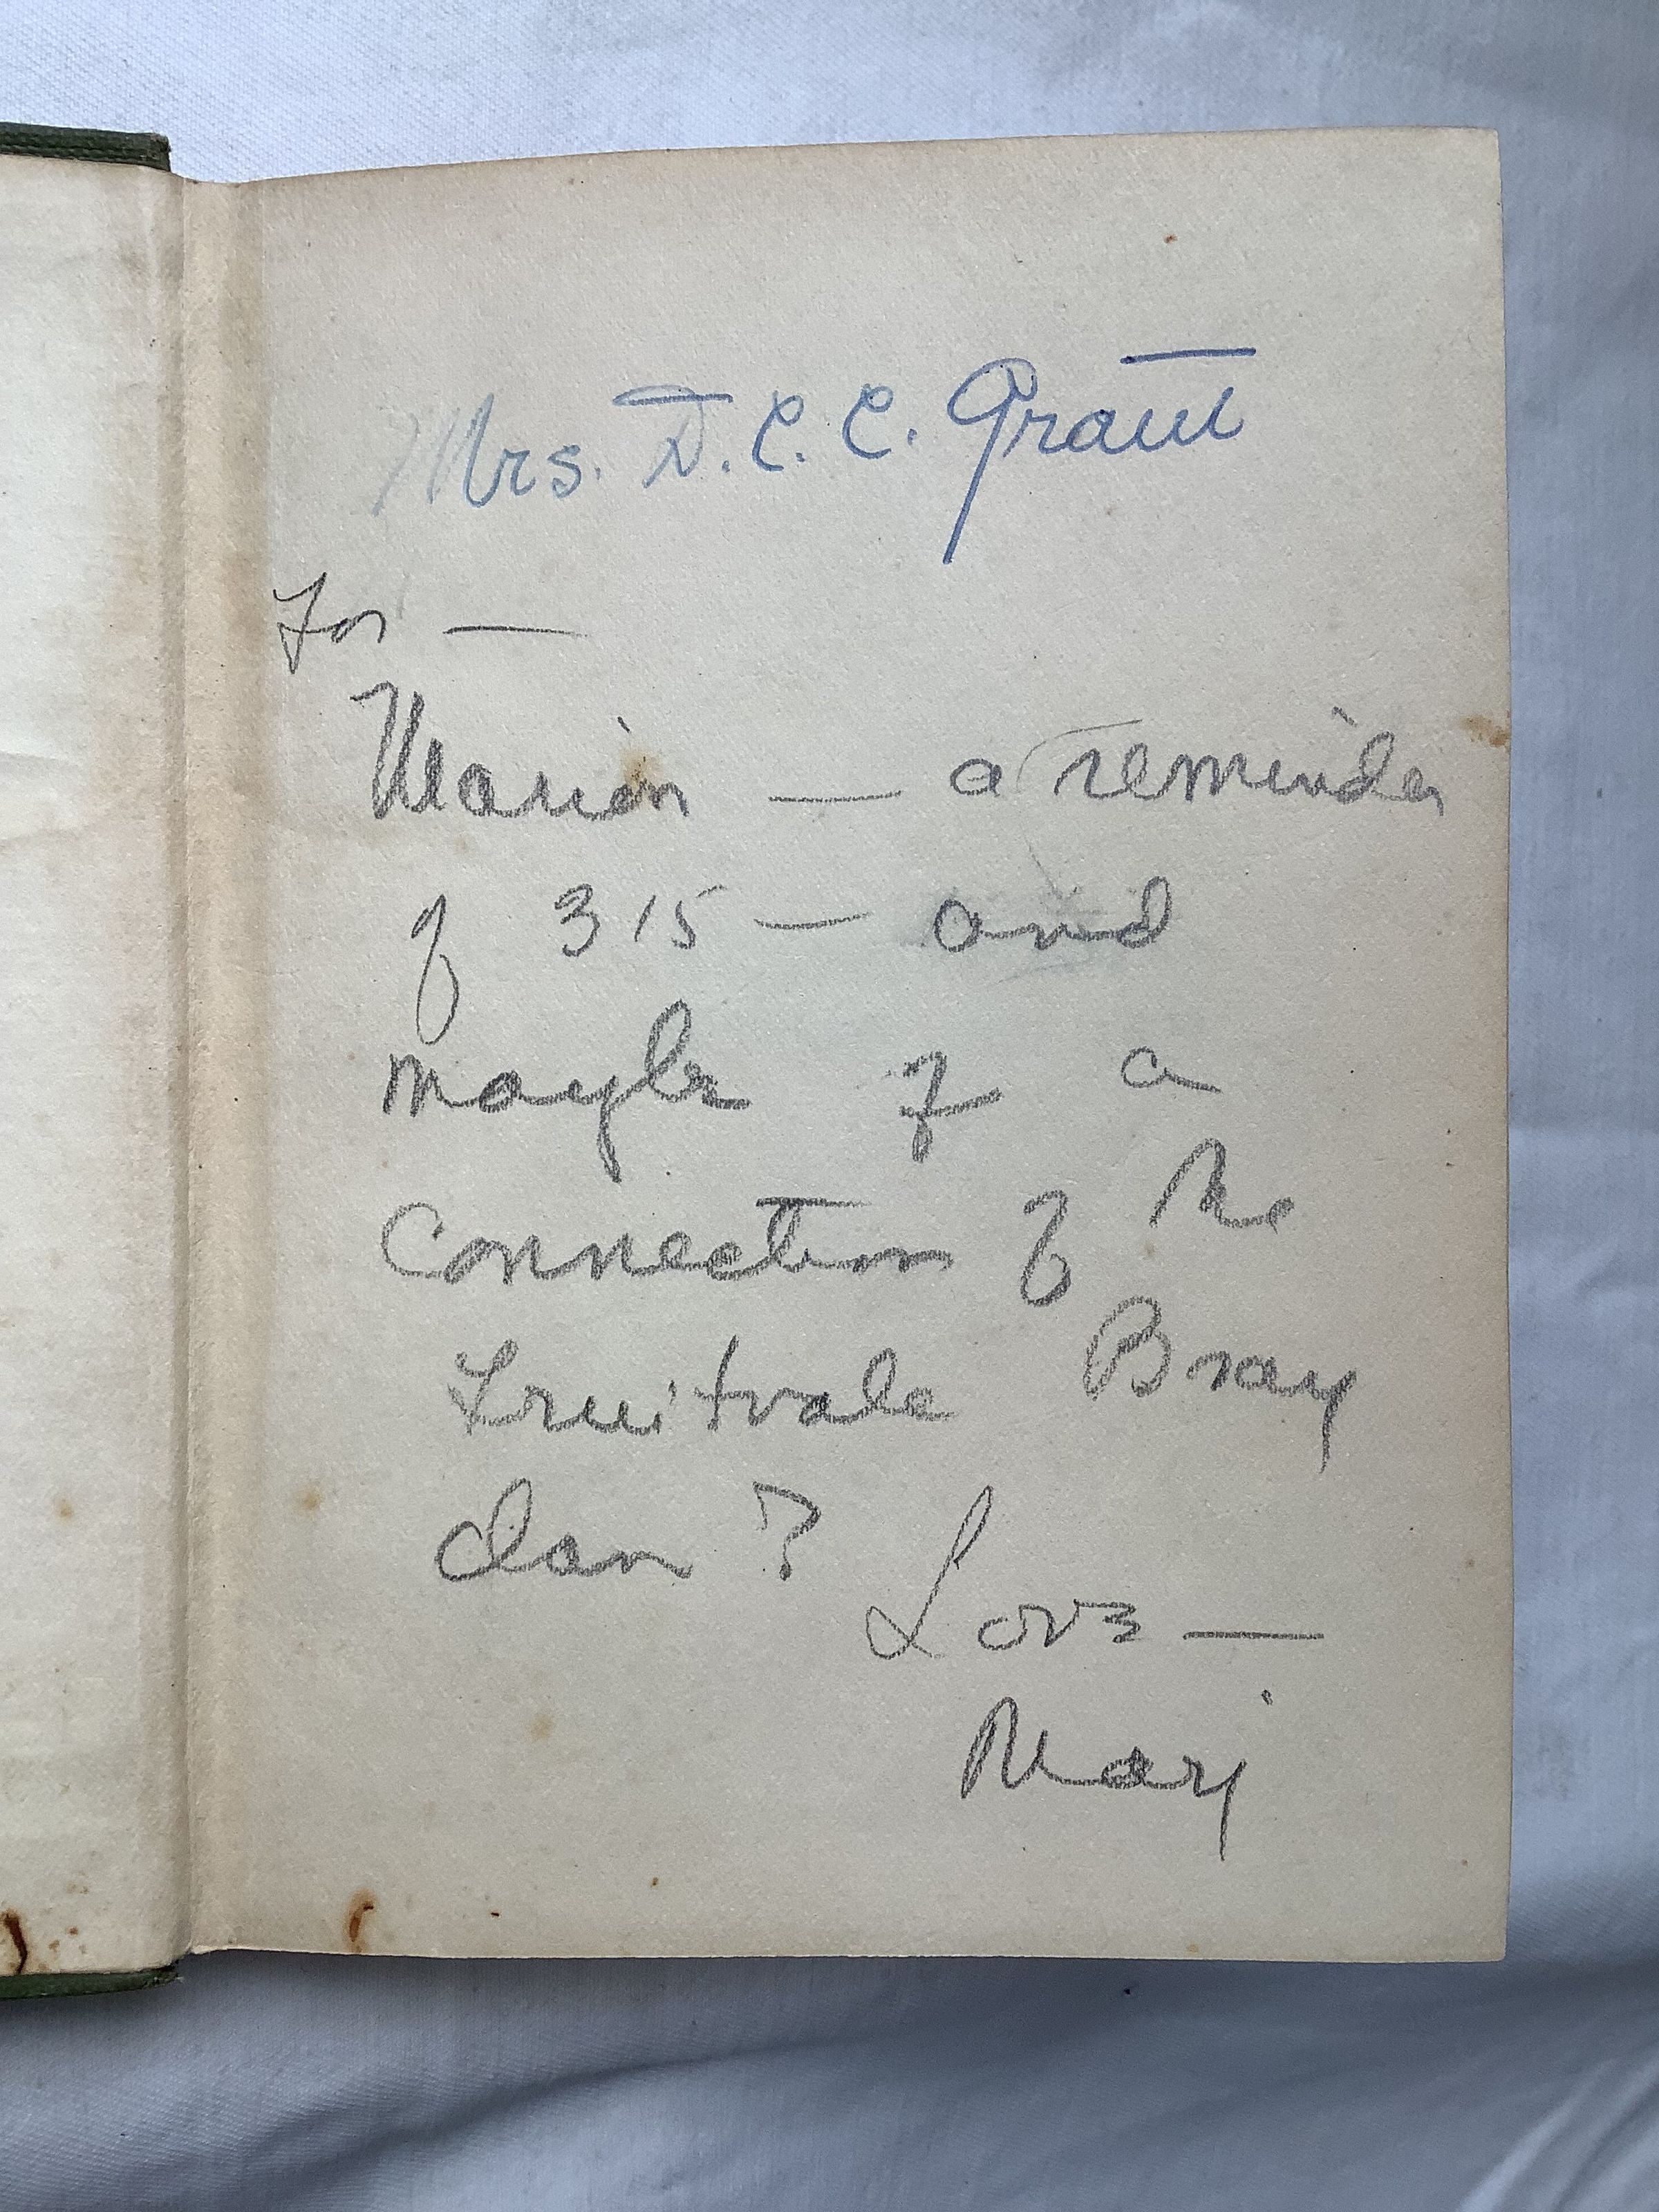 Mrs. D. C. C. Grant
For —
Marion — a reminder
of 315 — and
maybe of a
Connection of the
Fruitvale Bray
clan? Love —
Marj